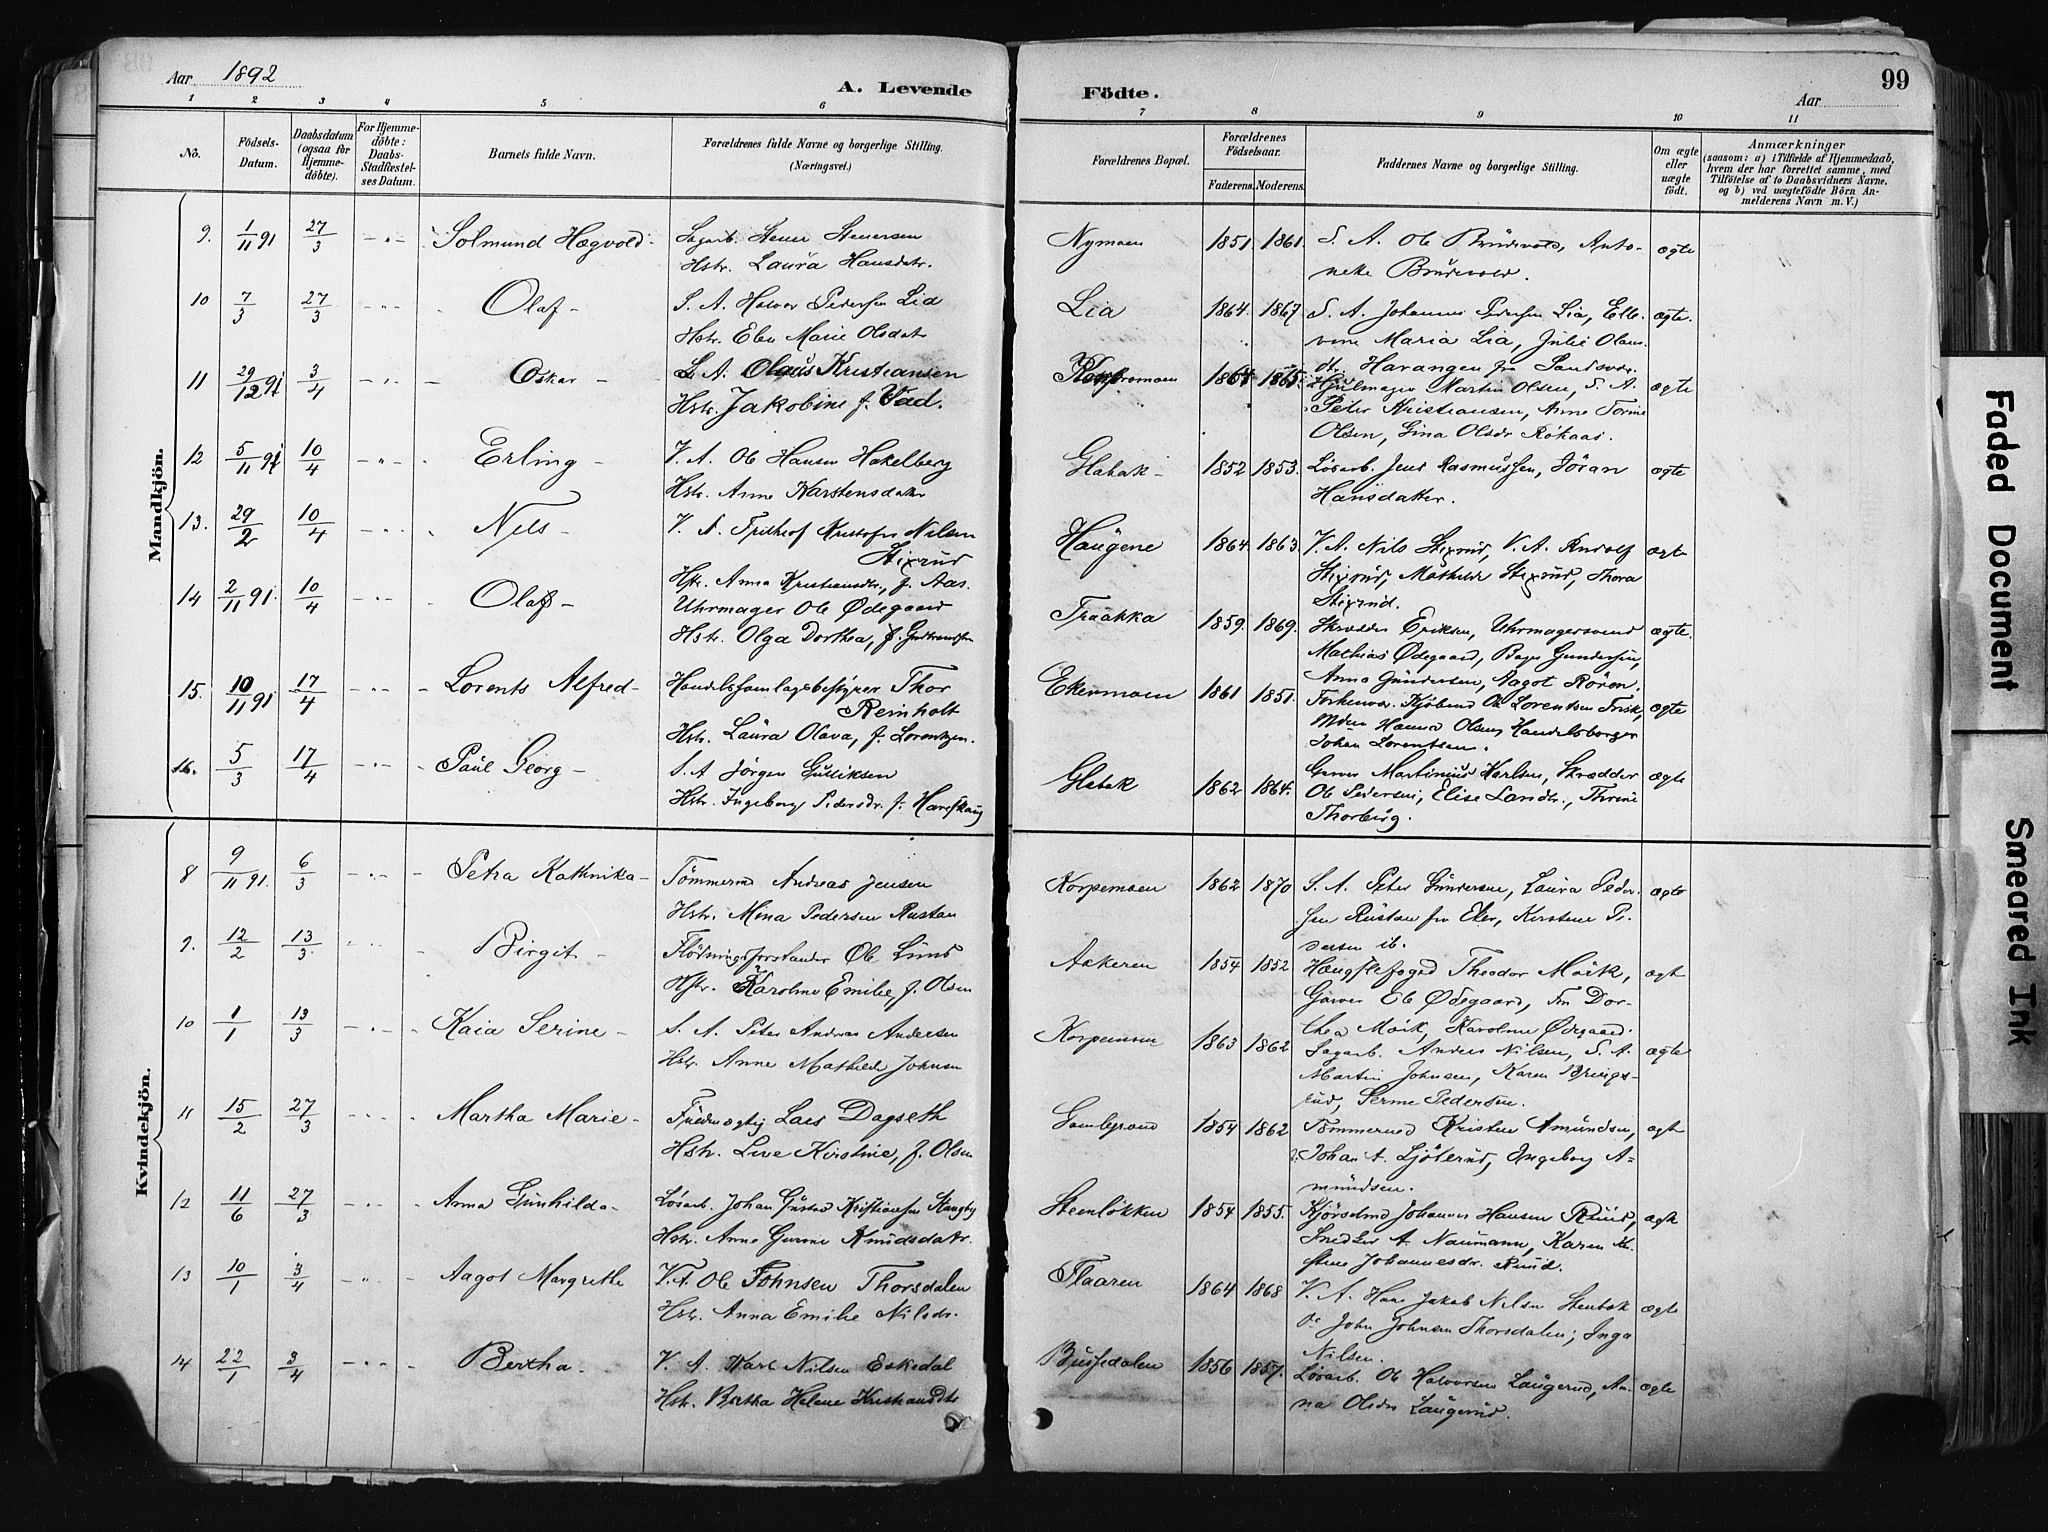 Aar 1892
A. Levende
Födte.
99
Aar
1 2 3 4 5 6 7 8 9 10 11
No.
Födsels-
Datum.
Daabsdatum
(ogsaa for
Hjemme-
döbte).
For Hjemme-
döbte:
Daabs-
Stadfæstel-
ses Datum.
Barnets fulde Navn.
Forældrenes fulde Navne og borgerlige Stilling.
(Næringsvei.)
Forældrenes Bopæl.
Forældrenes
Födselsaar.
Faderens. Moderens.
Faddernes Navne og borgerlige Stilling.
Om ægte
eller
uægte
födt.
Anmærkninger
(saasom: a) i Tilfælde af Hjemmedaab,
hvem der har forrettet samme, med
Tilföielse af to Daabsvidners Navne.
og b) ved uægtefödte Börn An-
melderens Navn m. V.)
Mandkjön.
9. 1/11 91 27/3 - " - Solmund Hægvold - Sagarb. Stener Stenersen
Hstr. Laura Hansdatr.
Nymoen 1851. 1861. S. A. Ole Brudevold, Anto-
nette Brudevold.
ægte
10 7/3 27/3 - " - Olaf - S. A. Halvor Pedersen Lia
Hstr. Elen Marie Olsdat
Lia 1864. 1867. S. A. Johannes Pedersen Lia, Elle-
vine Maria Lia, Julie Olaus
dr. Harangen fra Sandsvær.
ægte.
11 29/12 91 3/4 - " - Oskar - S. A. Olaus Kristiansen
Hstr. Jakobine f. Vad.
1864 1865. Hjulmager Martin Olsen, S. A.
Peter Kristiansen, Anne Torine
Olsen, Gina Olsdr Røkaas.
ægte
12 5/11 91 10/4 - " - Erling - V. A. Ole Hansen Hakelberg
Hstr. Anne Karstensdatter
Glabak - 1852 1853. Løsarb. Jens Rasmussen, Jöran
Hansdatter.
ægte
13. 29/2 10/4 - " - Nils - V. A. Frithjof Kristofer Nilsen
Stixrud
Hstr. Anna Kristiansdtr, f. Aas.
Haugene 1864. 1863. V. A. Nils Stixrud, V. A. Rudolf
Stixrud, Mathilde Stixrud, Thora
Stixrud.
ægte
14 2/11 91. 10/4 - " - Olaf - Uhrmager Ole Ødegaard
Hstr. Olga Dorthea, f. Gulbrandsen
Traakka 1859. 1869. Skrædder Eriksen, Uhrmagersvend
Mathias Ødegaard, Bager Gundersen,
Anna Gundersen, Aagot Rören.
ægte.
15. 10/11 91 17/4 - " - Lorents Alfred - Handelsforlagsbestyrer Thor
Reinholt
Hstr. Laura Olava, f. Lorentzen.
Ekermoen 1861 1851. Kjøbmd Ole Lorentsen Frisk,
Hanna Olsen, Handelsborger
Johan Lorentsen.
ægte
16. 5/3 17/4 - " - Paul Georg - S. A Jörgen Gulliksen
Hstr. Ingeborg Pedersdr. f. Hareskaug
Glabak 1862 1864. Garver Martinius Karlsen, Skrædder
Ole Pedersen, Elise Landtr., Thrine
Thorberg.
ægte
Kvindekjön.
8 9/11 91. 6/3 - " - Petra Kathrika - Tömmermd Andreas Jensen
Hstr. Mina Pedersen Rustan
Korpemoen 1862 1870 S. A. Peter Gundersen, Laura Peder-
sen Rustan fra Eker, Kirstine Pe-
dersen ib.
ægte
9. 12/2 13/3 Birgit - Flödningsforstander Ole Lund
Hstr. Karoline Emilie, f. Olsen
Aakeren 1854 1852 Hængslefoged Theodor Moik,
Garver Ole Ødegaard, Fru Dor-
thea Moik, Karoline Ødegaard.
ægt
10 1/1 13/3 - " - Kaia Serine - S. A. Peter Andreas Andersen
Hstr. Anne Mathilde Johnsen
Korpemoen 1863 1862 Sagarb. Anders Nilsen, S. A.
Martin Johnsen, Karen Brings-
rud, Serine Pedersen.
ægte
11 15/2 27/3 - " - Martha Marie - Lars Dagseth
Hstr. Live Kirstine, f. Olsen
Gamlegrand 1854 1862 Tømmermd Kristen Amundsen,
Johan A. Ljöterud, Ingeborg A-
mundsen.
ægt
12 11/6 27/3 - " - Anna Gunhilda - Løsarb. Johan Gustav Kristiansen Stangby
Hstr. Anne Gurine Knudsdatr.
Steenløkken 1854 1855. Kjörselmd Johannes Hansen Ruud,
Snedker A. Naumann, Karen Kr.
stine Johannesdr. Ruud.
ægt
13 10/1 3/4 - " - Aagot Margrethe V. A. Ole Johnsen Thorsdalen
Hstr. Anna Emilie Nilsdr.
Flaaren 1864 1868 V. A. Hans Jakob Nilsen Stenbak
John Johnsen Thorsdalen, Inga
Nilsen.
ægte
14 22/1 3/4 - " - Bertha - V. A. Karl Nilsen Eskedal
Hstr. Bertha Helene Kristiansdtr
Bussedalen 1856 1857. Løsarb. Ole Halvorsen Laugerud, An-
na Olsdtr Laugerud.
ægte
Faded Document
Smeared Ink